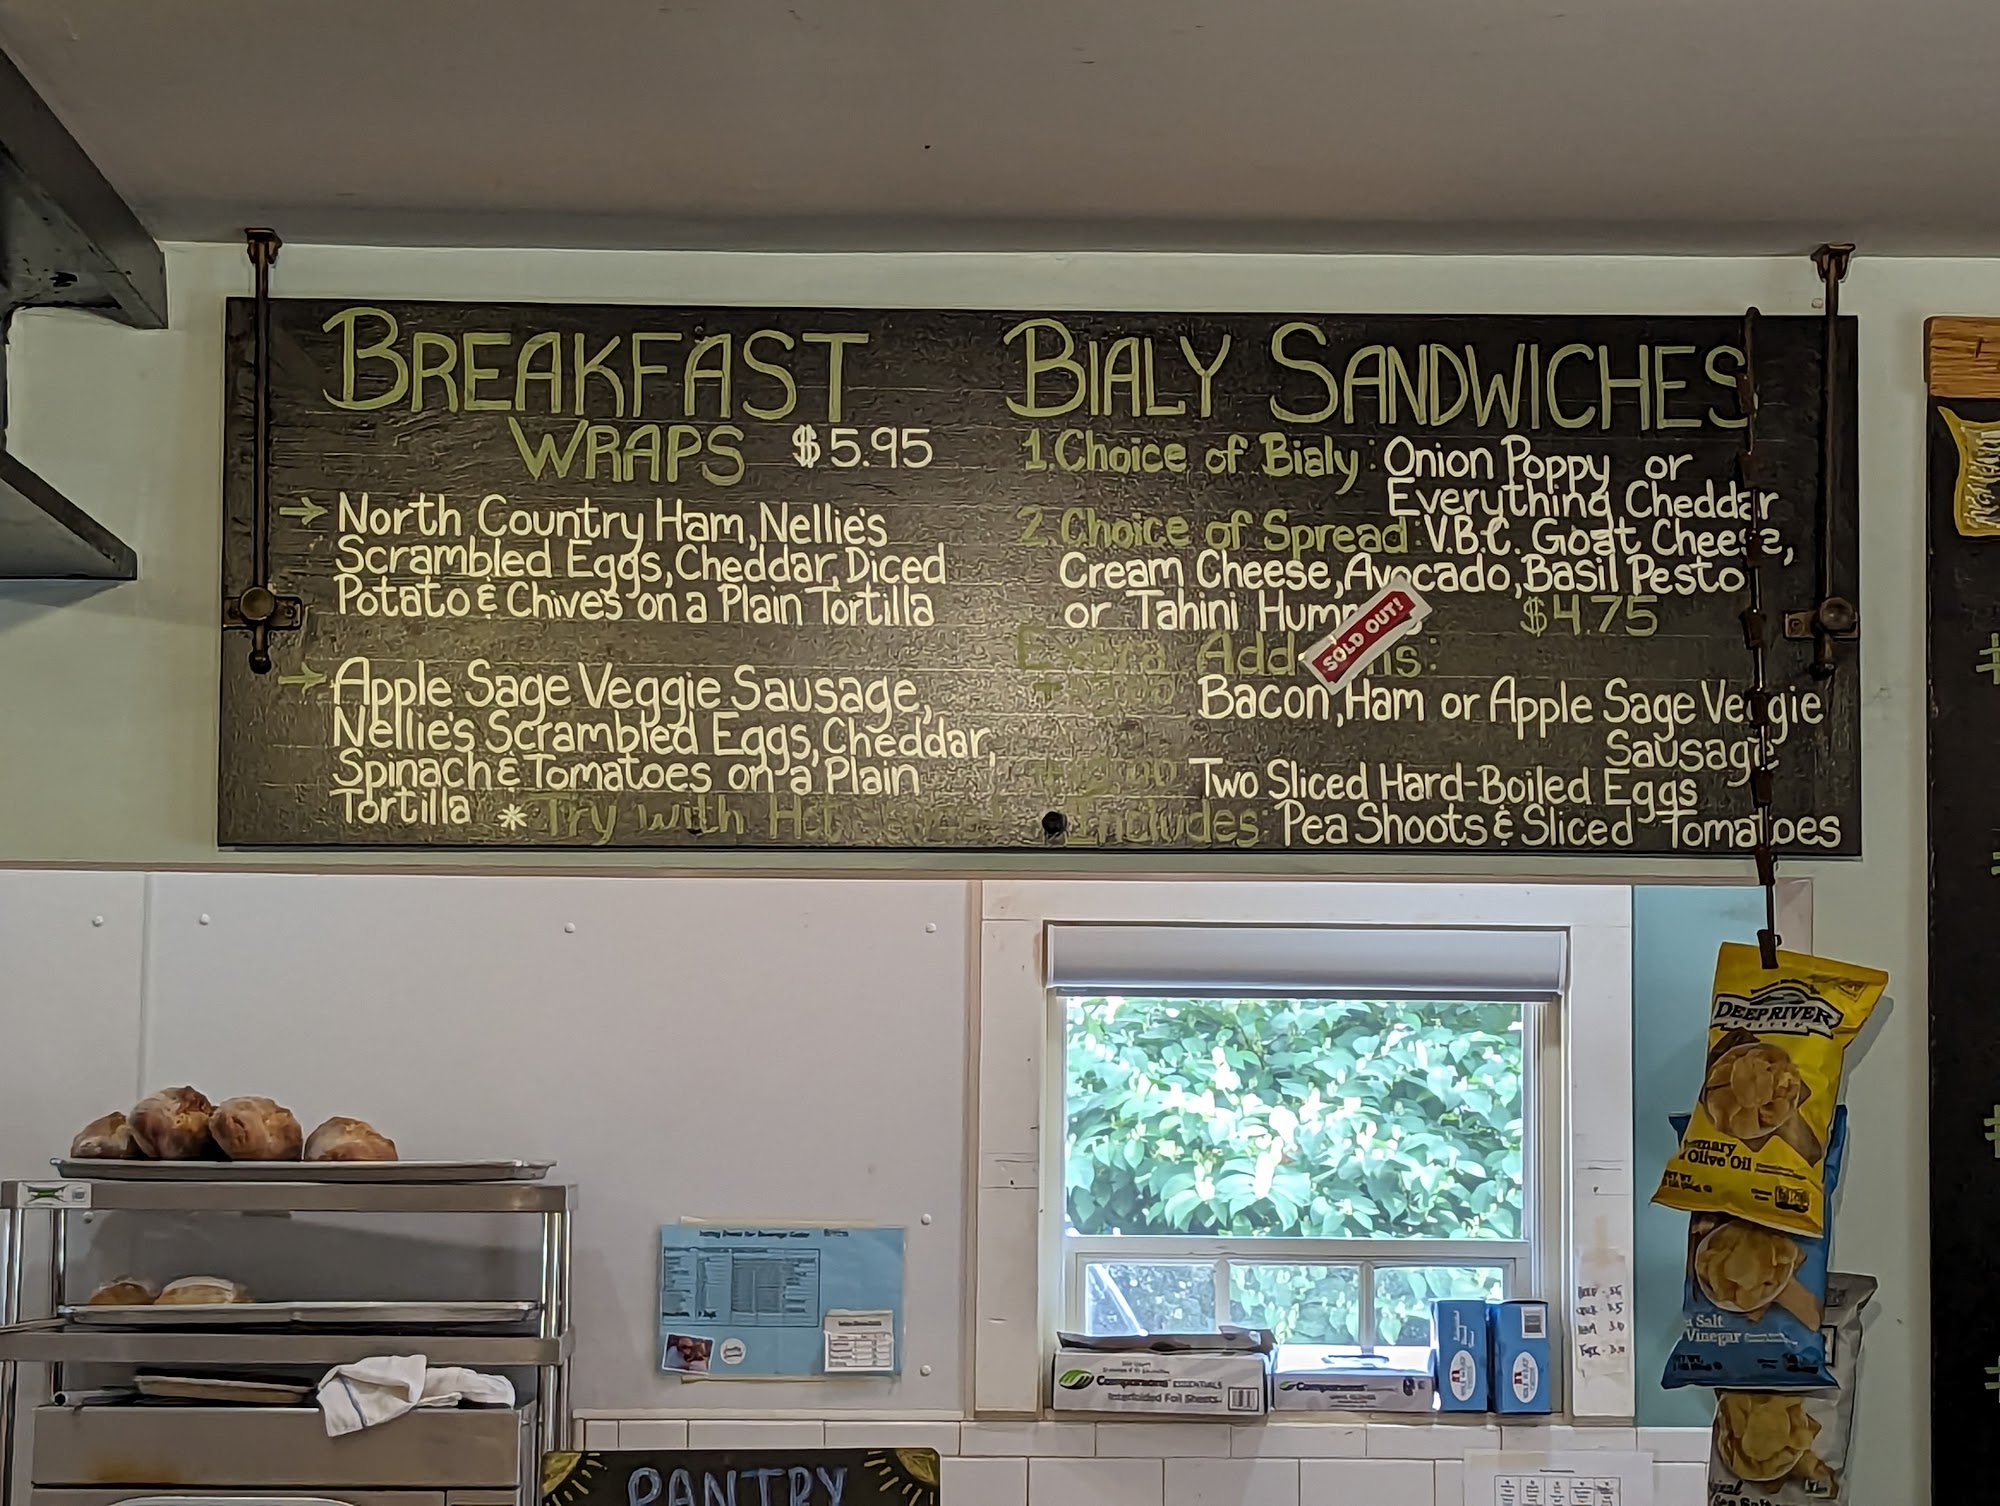 BREAKFAST
WRAPS $5.95
→ North Country Ham, Nellie's
Scrambled Eggs, Cheddar, Diced
Potato & Chives on a Plain Tortilla
→ Apple Sage Veggie Sausage,
Nellie's Scrambled Eggs, Cheddar,
Spinach & Tomatoes on a Plain
Tortilla * Try with Hot
BIALY SANDWICHES
1. Choice of Bialy: Onion Poppy or
Everything Cheddar
2. Choice of Spread: V.B.C. Goat Cheese,
Cream Cheese, Avocado, Basil Pesto
or Tahini $4.75
SOLD OUT!
Extra
Bacon, Ham or Apple Sage Veggie
Sausage
Two Sliced Hard-Boiled Eggs
Includes Pea Shoots & Sliced Tomatoes
DEEP RIVER
Olive Oil
Salt
Vinegar
Comparisons ESSENTIALS
Interfolded Foil Sheets
Comparisons
PANTRY